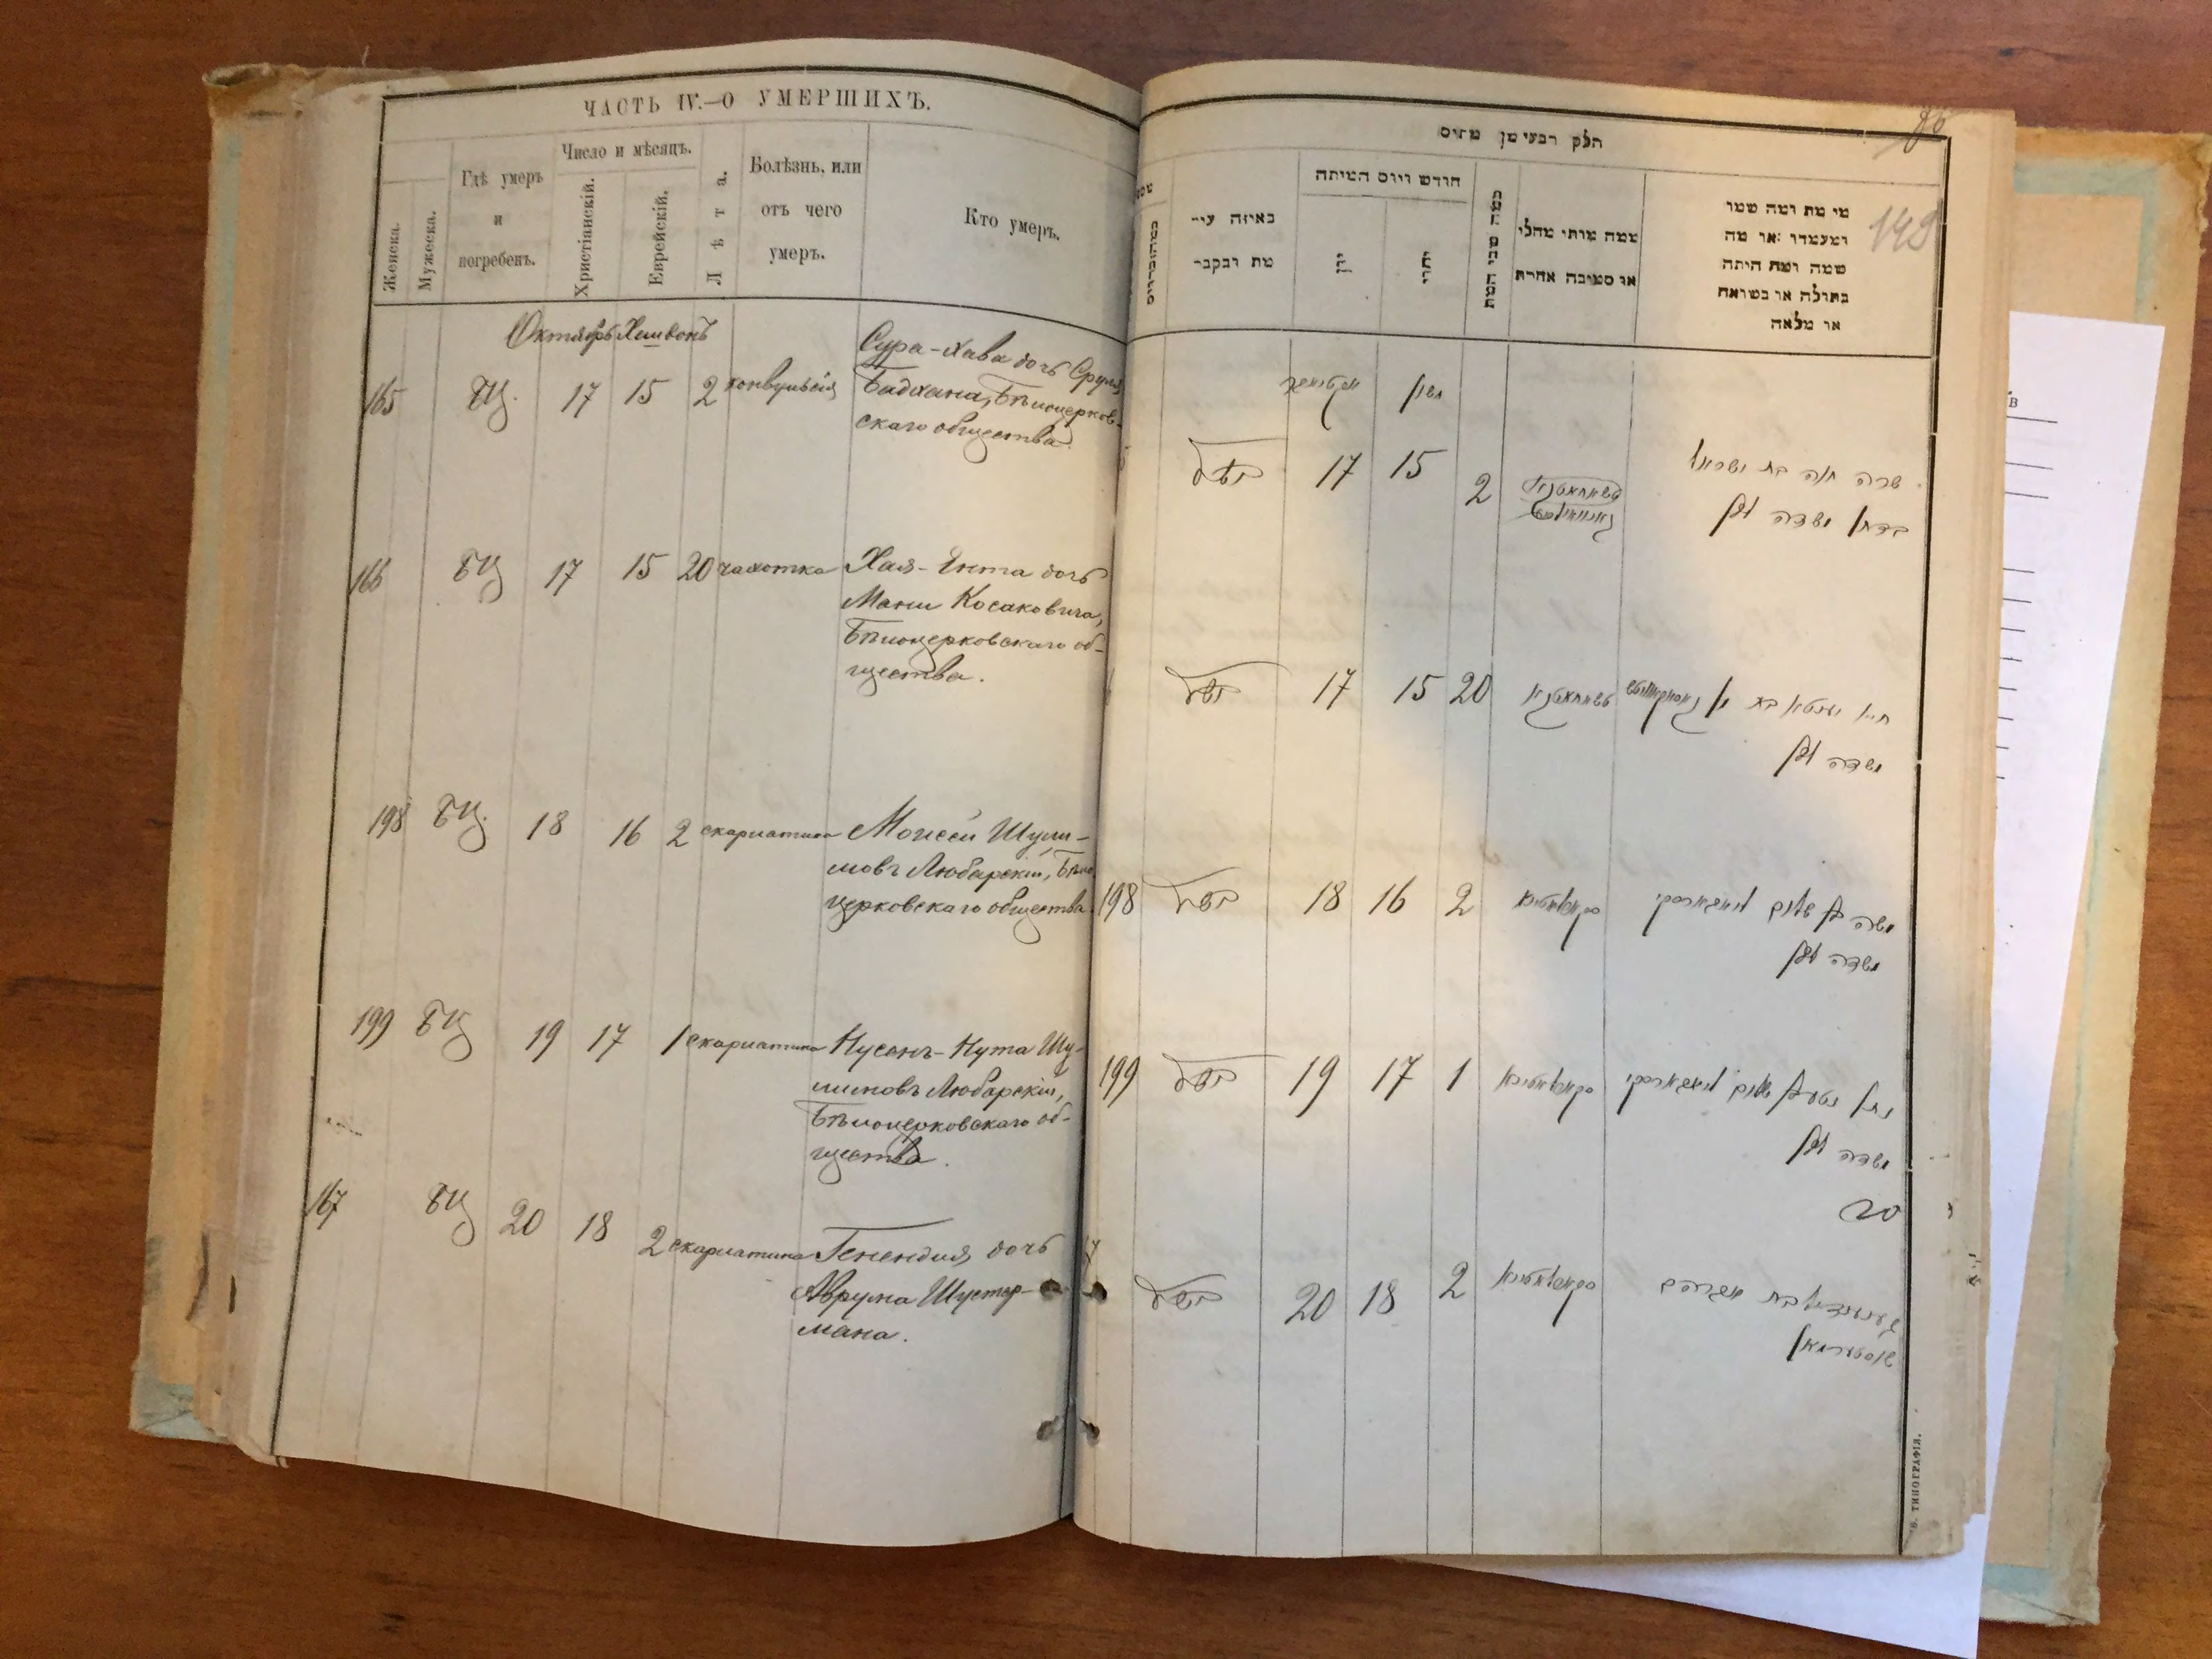 ЧАСТЬ IV.—О УМЕРШИХЪ.
Женска.
Мужеска.
Гдѣ умеръ
и
погребенъ.
Число и мѣсяцъ.
Христіанскій.
Еврейскій.
Лѣта.
Болѣзнь, или
отъ чего
умеръ.
Кто умеръ.
Октябрь Хешвонъ
165 БЦ. 17 15 2 конвульсія Сура-Хава дочь Сруля
Бадхана, Бѣлоцерков-
скаго общества.
166 БЦ 17 15 20 чахотка Хая-Ента дочь
Мани Косаковича,
Бѣлоцерковскаго об-
щества.
198 БЦ. 18 16 2 скарлатина Моисей Шули-
мовъ Любарскій, Бѣло
церковскаго общества
199 БЦ 19 17 1 скарлатина Нусенъ-Нута Шу-
лимовъ Любарскій,
Бѣлоцерковскаго об-
щества.
167 БЦ 20 18 2 скарлатина Генендля, дочь
Аврума Шустер-
мана.
חלק רביעי מן מתים
149
מי מת ומה שמו
ומעמדו או מה
שמה ומה היתה
בתולה או נשואה
או מלאה
ממה מותו מחלי
או מסיבה אחרת
כמה שני המת
חודש ויום המיתה
יהודי
יון
באיזה עי־
מת ונקבר
אקטיאבר חשון
17 15 2
שרה חוה בת ישראל
בדחן
17 15 20 טשאחאטקא
חיי יענטא בת
198 18 16 2 סקארלאטינא
משה בן שלום ליובארסקי
199 19 17 1 סקארלאטינא
נתן נטע בן שלום ליובארסקי
20 18 2 סקארלאטינא
גענענדיל בת אברהם
שוסטערמאן
В. ТИПОГРАФІЯ.